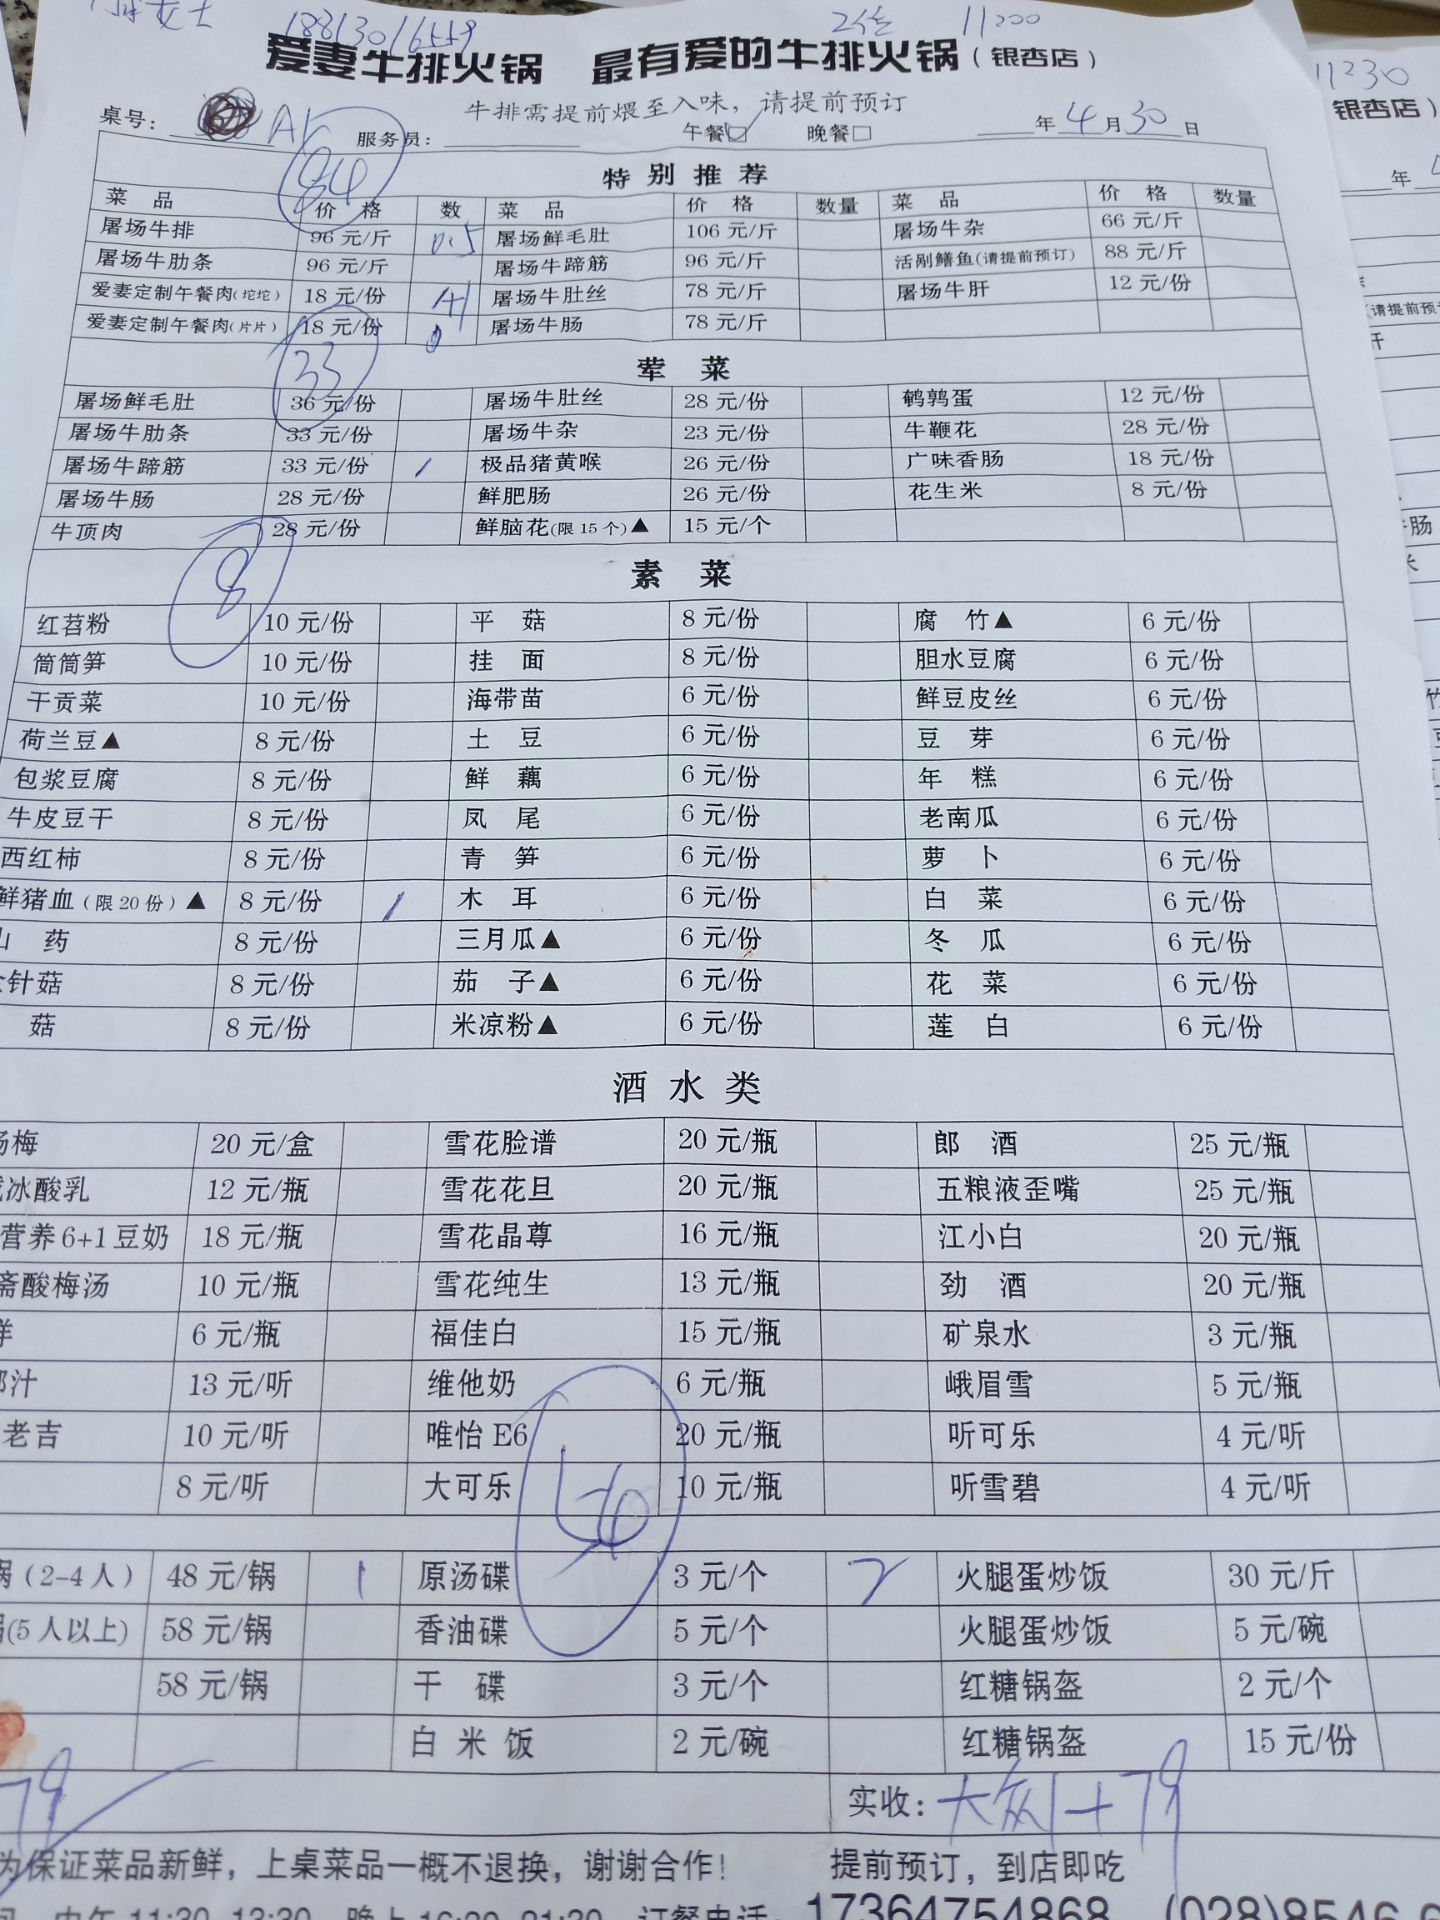 龙士 18813016559 2位 11:00
爱妻牛排火锅 最有爱的牛排火锅(银杏店)
牛排需提前煨至入味，请提前预订
桌号: A1 服务员: 午餐□ 晚餐□ 年 4 月 30 日
84
特别推荐
菜品 价格 数 菜品 价格 数量 菜品 价格 数量
屠场牛排 96元/斤 0.5 屠场鲜毛肚 106元/斤 屠场牛杂 66元/斤
屠场牛肋条 96元/斤 屠场牛蹄筋 96元/斤 活剐鳝鱼(请提前预订) 88元/斤
爱妻定制午餐肉(坨坨) 18元/份 屠场牛肚丝 78元/斤 屠场牛肝 12元/份
爱妻定制午餐肉(片片) 18元/份 屠场牛肠 78元/斤
33
荤菜
屠场鲜毛肚 36元/份 屠场牛肚丝 28元/份 鹌鹑蛋 12元/份
屠场牛肋条 33元/份 屠场牛杂 23元/份 牛鞭花 28元/份
屠场牛蹄筋 33元/份 1 极品猪黄喉 26元/份 广味香肠 18元/份
屠场牛肠 28元/份 鲜肥肠 26元/份 花生米 8元/份
牛顶肉 28元/份 鲜脑花(限15个)▲ 15元/个
8
素菜
红苕粉 10元/份 平菇 8元/份 腐竹▲ 6元/份
筒筒笋 10元/份 挂面 8元/份 胆水豆腐 6元/份
干贡菜 10元/份 海带苗 6元/份 鲜豆皮丝 6元/份
荷兰豆▲ 8元/份 土豆 6元/份 豆芽 6元/份
包浆豆腐 8元/份 鲜藕 6元/份 年糕 6元/份
牛皮豆干 8元/份 凤尾 6元/份 老南瓜 6元/份
西红柿 8元/份 青笋 6元/份 萝卜 6元/份
鲜猪血(限20份)▲ 8元/份 1 木耳 6元/份 白菜 6元/份
山药 8元/份 三月瓜▲ 6元/份 冬瓜 6元/份
针菇 8元/份 茄子▲ 6元/份 花菜 6元/份
菇 8元/份 米凉粉▲ 6元/份 莲白 6元/份
酒水类
杨梅 20元/盒 雪花脸谱 20元/瓶 郎酒 25元/瓶
冰酸乳 12元/瓶 雪花花旦 20元/瓶 五粮液歪嘴 25元/瓶
营养6+1豆奶 18元/瓶 雪花晶尊 16元/瓶 江小白 20元/瓶
斋酸梅汤 10元/瓶 雪花纯生 13元/瓶 劲酒 20元/瓶
6元/瓶 福佳白 15元/瓶 矿泉水 3元/瓶
汁 13元/听 维他奶 6元/瓶 峨眉雪 5元/瓶
老吉 10元/听 唯怡E6 20元/瓶 听可乐 4元/听
8元/听 大可乐 10元/瓶 听雪碧 4元/听
锅(2-4人) 48元/锅 1 原汤碟 3元/个 2 火腿蛋炒饭 30元/斤
(5人以上) 58元/锅 香油碟 5元/个 火腿蛋炒饭 5元/碗
58元/锅 干碟 3元/个 红糖锅盔 2元/个
白米饭 2元/碗 红糖锅盔 15元/份
79 实收: 大众1+79
为保证菜品新鲜，上桌菜品一概不退换，谢谢合作! 提前预订，到店即吃
中午11:30-13:30 晚上16:30-21:30 订餐电话: 17364754868 (028)8546
11:30
银杏店)
年
请提前预
肝
肠